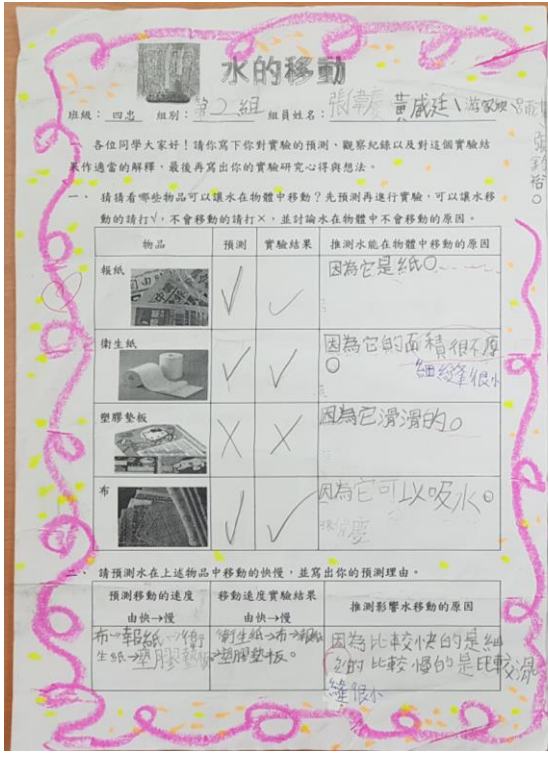 水的移動
班級：四忠 組別：第2組 組員姓名：張偉慶 黃威廷、游
各位同學大家好！請你寫下你對實驗的預測、觀察紀錄以及對這個實驗結
果作適當的解釋，最後再寫出你的實驗研究心得與想法。
一、 猜猜看哪些物品可以讓水在物體中移動？先預測再進行實驗，可以讓水移
動的請打√，不會移動的請打×，並討論水在物體中不會移動的原因。
物品 預測 實驗結果 推測水能在物體中移動的原因
報紙 √ √ 因為它是紙。
衛生紙 √ √ 因為它的面積很不厚
。
細縫很小
塑膠墊板 × × 因為它滑滑的。
布 √ √ 因為它可以吸水。
二、 請預測水在上述物品中移動的快慢，並寫出你的預測理由。
預測移動的速度 移動速度實驗結果 推測影響水移動的原因
由快→慢 由快→慢
布→報紙→衛 衛生紙→布→報紙 因為比較快的是細
生紙→塑膠墊板 →塑膠墊板。 的比較慢的是比較滑
縫很小